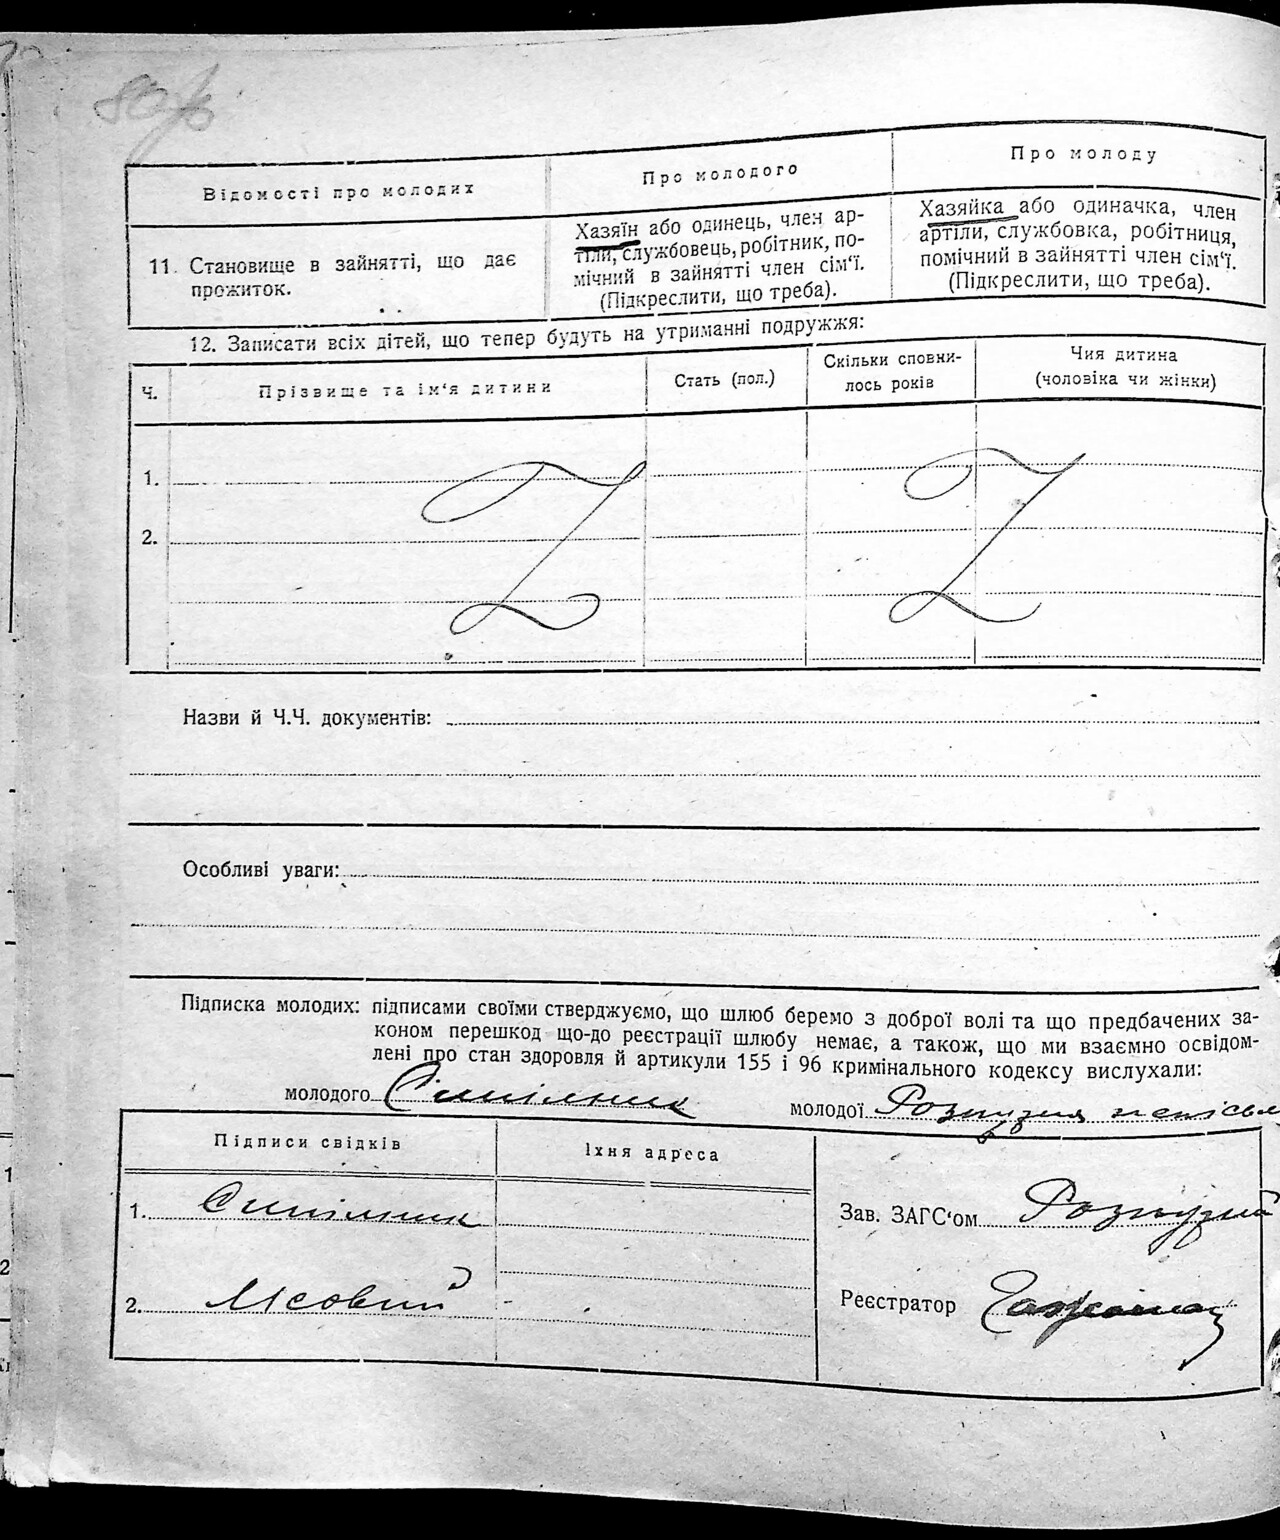 Відомості про молодих
Про молодого
Про молоду
11. Становище в зайнятті, що дає
прожиток.
Хазяїн або одинець, член ар-
тіли, службовець, робітник, по-
мічний в зайнятті член сім'ї.
(Підкреслити, що треба).
Хазяйка або одиначка, член
артіли, службовка, робітниця,
помічний в зайнятті член сім'ї.
(Підкреслити, що треба).
12. Записати всіх дітей, що тепер будуть на утриманні подружжя:
Ч.
Прізвище та ім'я дитини
Стать (пол.)
Скільки сповни-
лось років
Чия дитина
(чоловіка чи жінки)
1.
2.
Назви й Ч.Ч. документів:
Особливі уваги:
Підписка молодих: підписами своїми стверджуємо, що шлюб беремо з доброї волі та що предбачених за-
коном перешкод що-до реєстрації шлюбу немає, а також, що ми взаємно освідом-
лені про стан здоровля й артикули 155 і 96 кримінального кодексу вислухали:
молодого
молодої
Підписи свідків
Їхня адреса
1.
Зав. ЗАГС'ом
2. Лісовий
Реєстратор